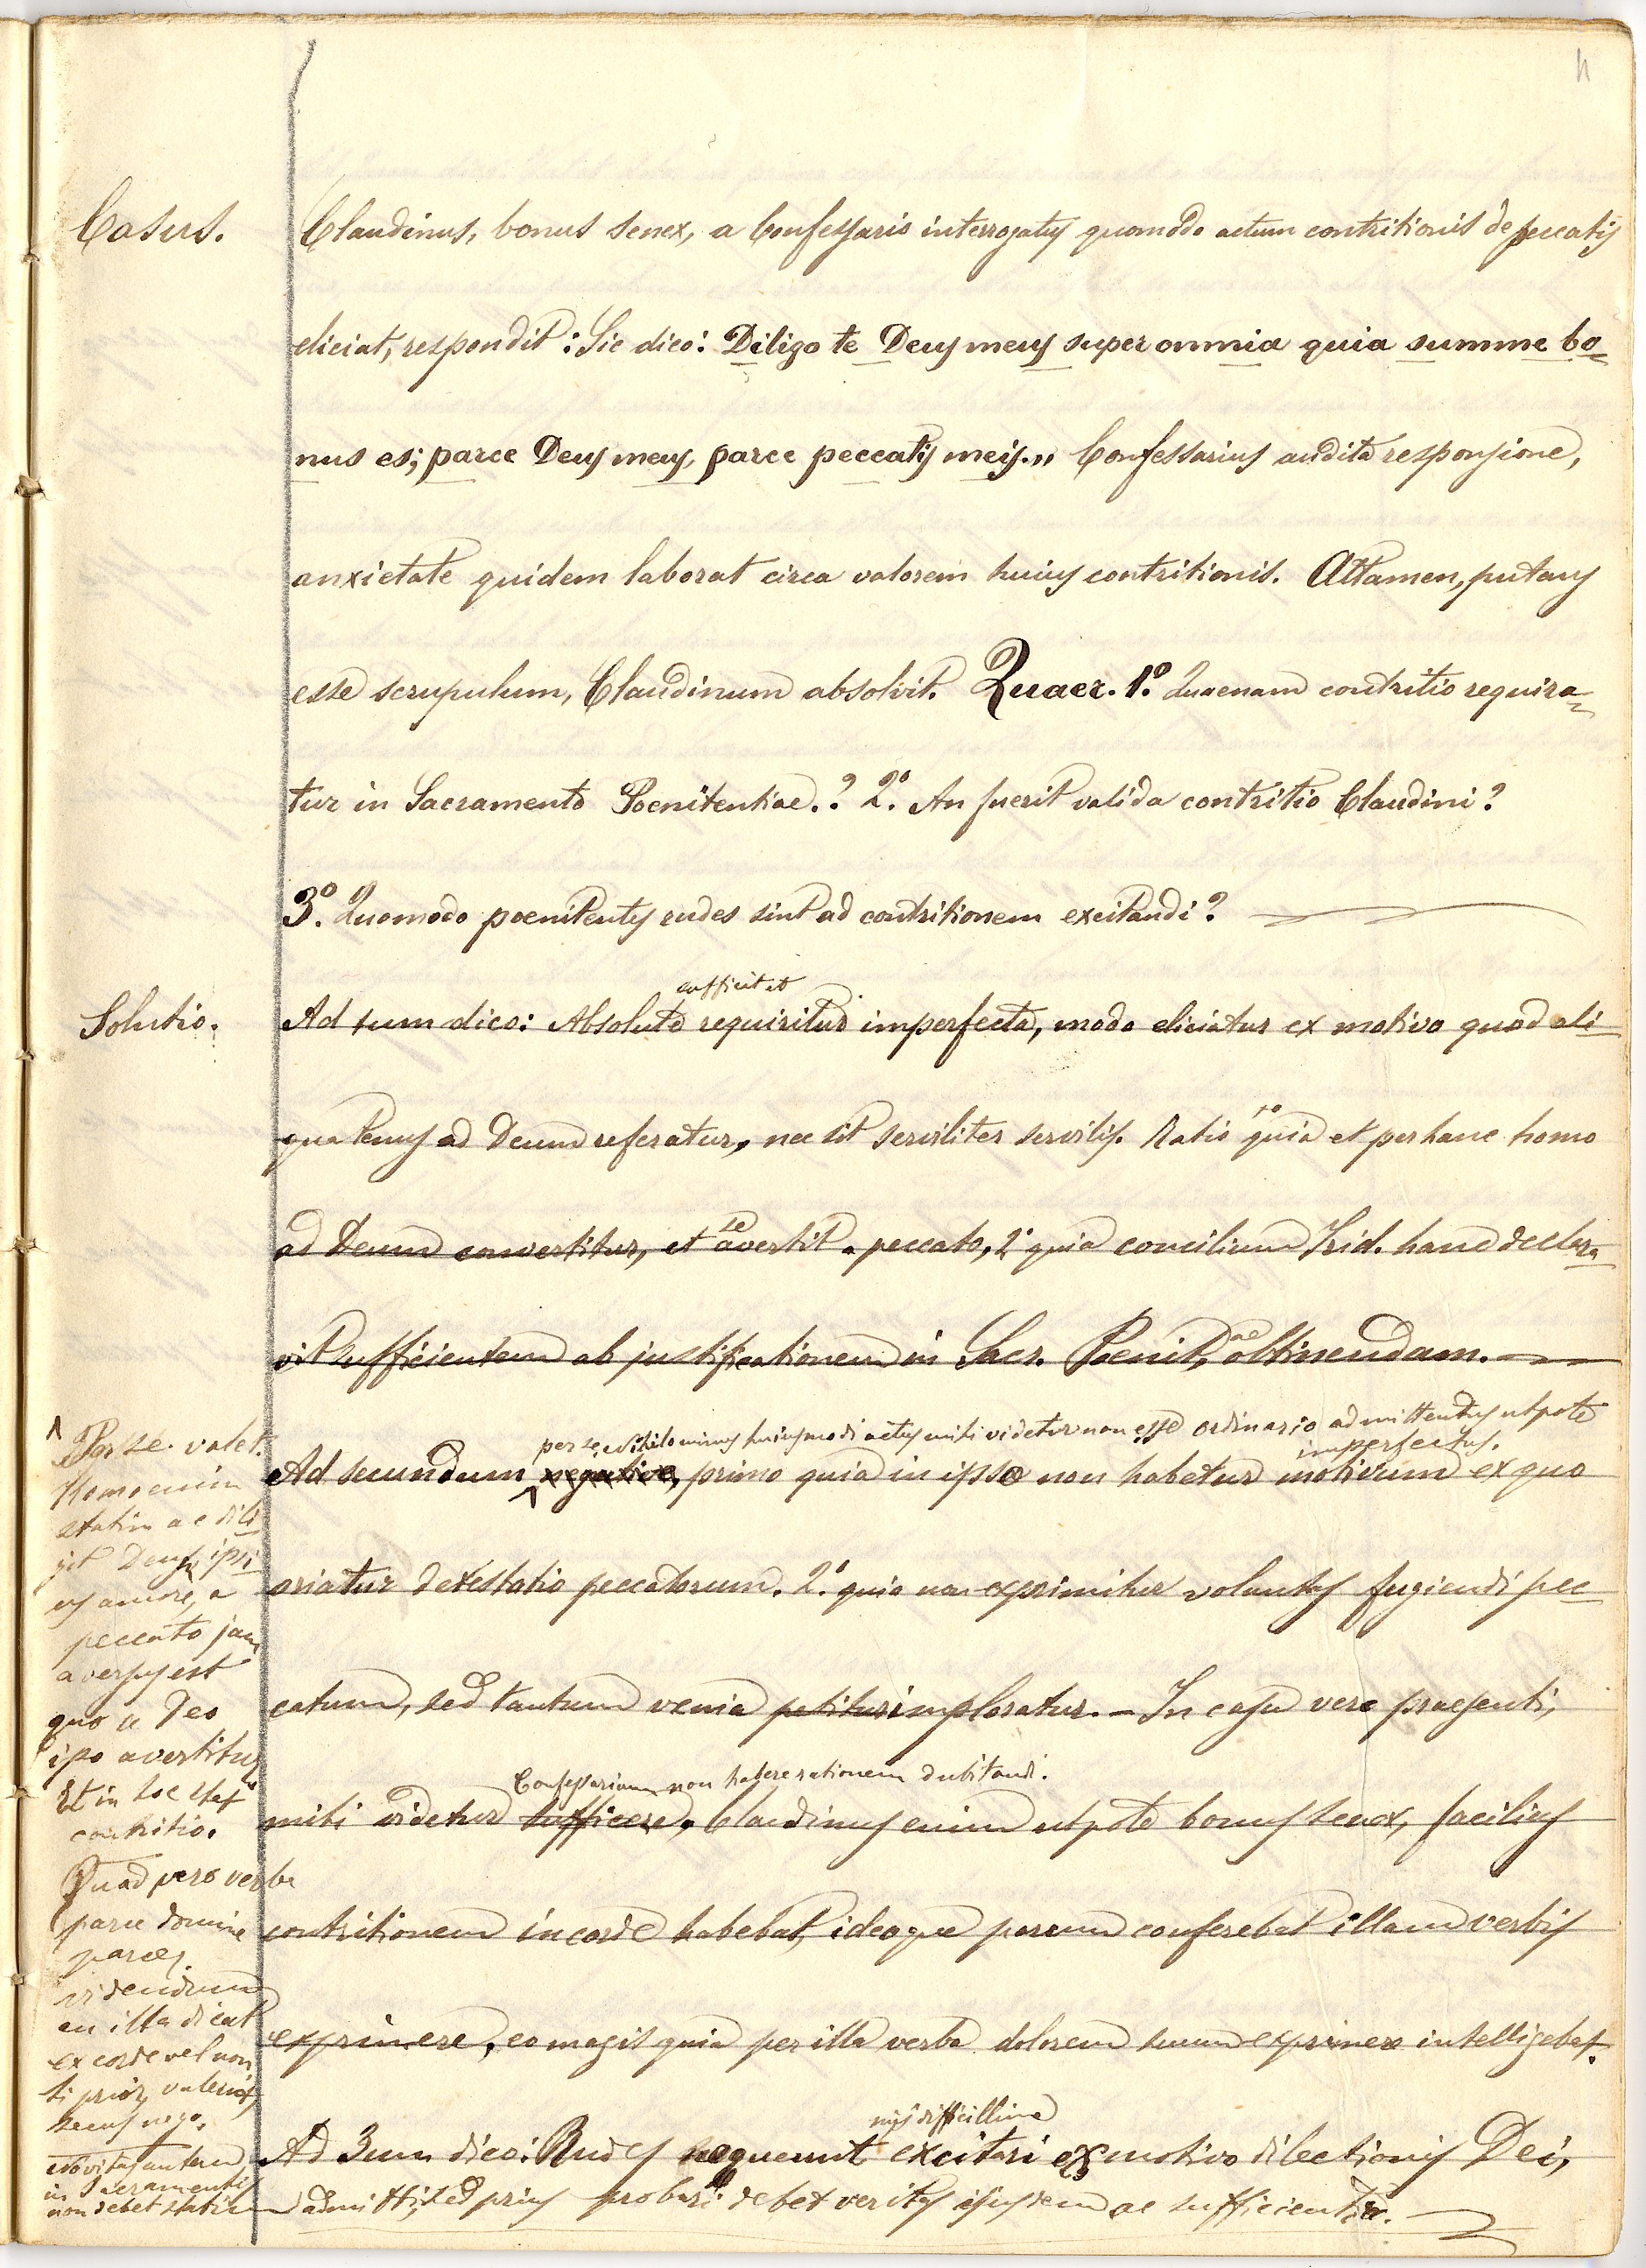 Casus.
Claudinus, bonus senex, a Confessario interrogatus quomodo actum contritionis de peccatis
eliciat, respondit: Sic dico: Diligo te Deus meus super omnia quia summe bo-
nus es; parce Deus meus, parce peccatis meis.,, Confessarius audita responsione,
anxietate quidem laborat circa valorem huius contritionis. Attamen, putans
esse scrupulum, Claudinum absolvit. Quaer. 1º. Quaenam contritio requira-
tur in Sacramento Poenitentiae.? 2º. An fuerit valida contritio Claudini?
3º. Quomodo poenitentes rudes sint ad contritionem excitandi?
Solutio.
sufficit et
Ad 1um dico: Absolute requiritur imperfecta, modo eliciatur ex motivo quod ali-
quatenus ad Deum referatur, nec sit serviliter servilis. Ratio 1º quia et per hanc homo
ad Deum convertitur, et se avertit a peccato, 2º quia concilium Trid. hanc declara-
vit sufficientem ab justificationem in Sacr. Poenit.ae obtinendam.
per se, nihilominus huiusmodi actus mihi videtur non esse ordinario admittendus utpote
imperfectus.
Ad secundum negative, primo quia in ipso non habetur motivum ex quo
oriatur detestatio peccatorum. 2º. quia non exprimitur voluntas fugiendi pec-
catum, sed tantum venia petitur imploratur. – In casu vero praesenti,
Confessarium non habere rationem dubitandi.
mihi videtur sufficere. Claudinus enim utpote bonus senex, facilius
contritionem in corde habebat, ideoque parum conferebat illam verbis
exprimere, eo magis quia per illa verba dolorem suum exprimere intelligebat.
nisi difficillime
Ad 3um dico: Rudes nequeunt excitari ex motivo dilectionis Dei,
Per se valet.
Homo enim
statim ac dili-
git Deum, ipsi
us amore, a
peccato jam
aversus est
quo a Deo
ipso avertitur
Et in hoc stat
contritio.
Quod vero verba
parce domine
parce,
videndum
an illa dicat
ex corde vel non
si prius, valerent
secus nego.
Novitas autem
in Sacramentis
non debet statim admitti, sed prius probari debet veritas ejusdem ac sufficientia.